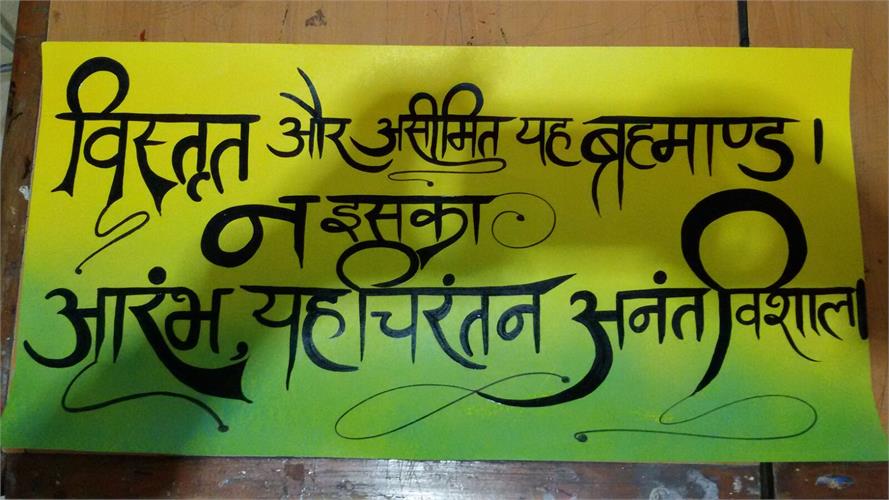 विस्तृत और असीमित यह ब्रहमाण्ड।
न इसका
आरंभ, यह चिरंतन अनंत विशाल।